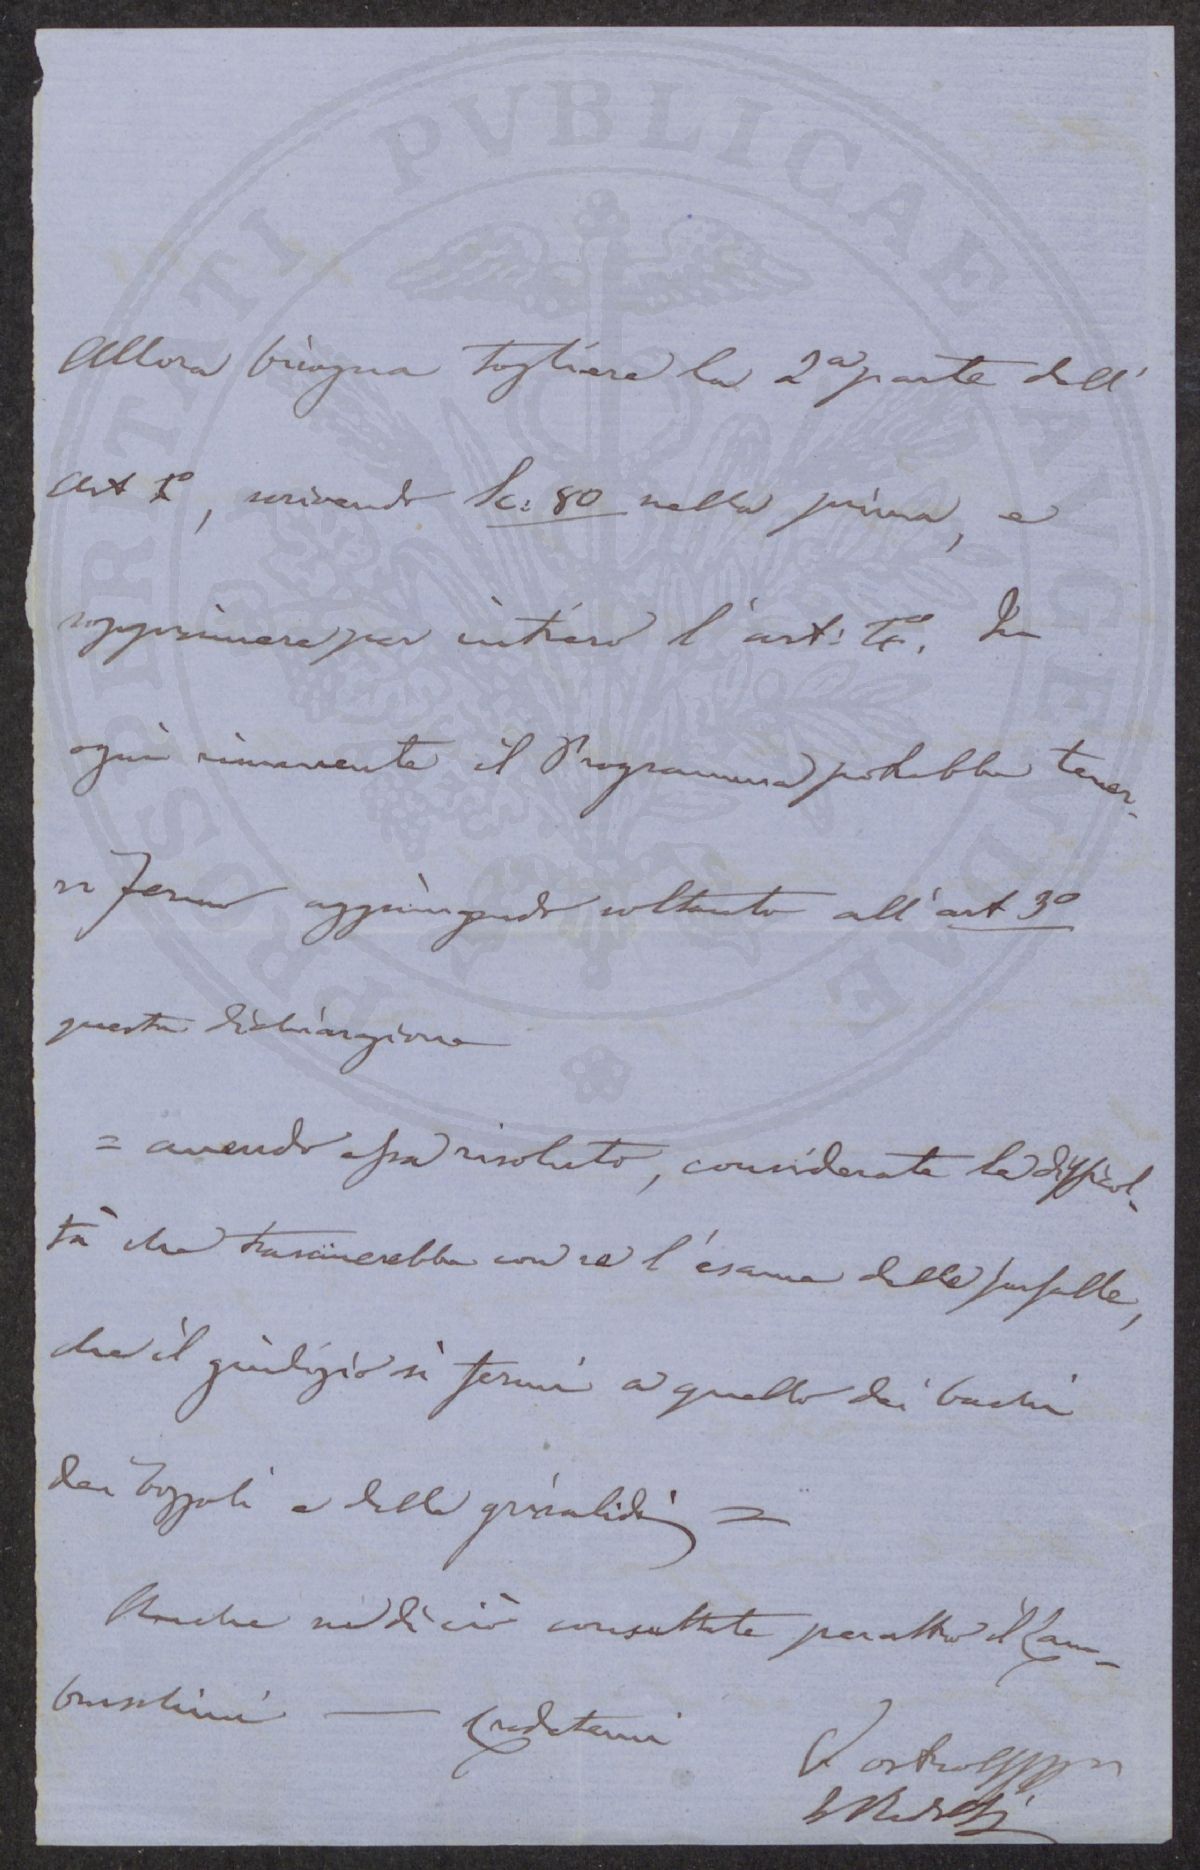 PROSPERITATI PVBLICAE AVGENDAE
Allora bisogna togliere la 2a parte dell'
Art Io, scrivendo Lc: 80 nella prima, e
sopprimere per intiero l'art:
In
ogni rimanente il Programma potrebbe tener-
si fermo aggiungendo soltanto all'art 3o
questa dichiarazione
= avendo essa risoluto, considerate le difficol-
tà che trascinerebbe con se l'esame delle farfalle,
che il giudizio si fermi a quello dei bachi
dei bozzoli e delle grisalidi =
Anche su di ciò consultate peraltro il Lam-
bruschini — Credetemi
Vostro